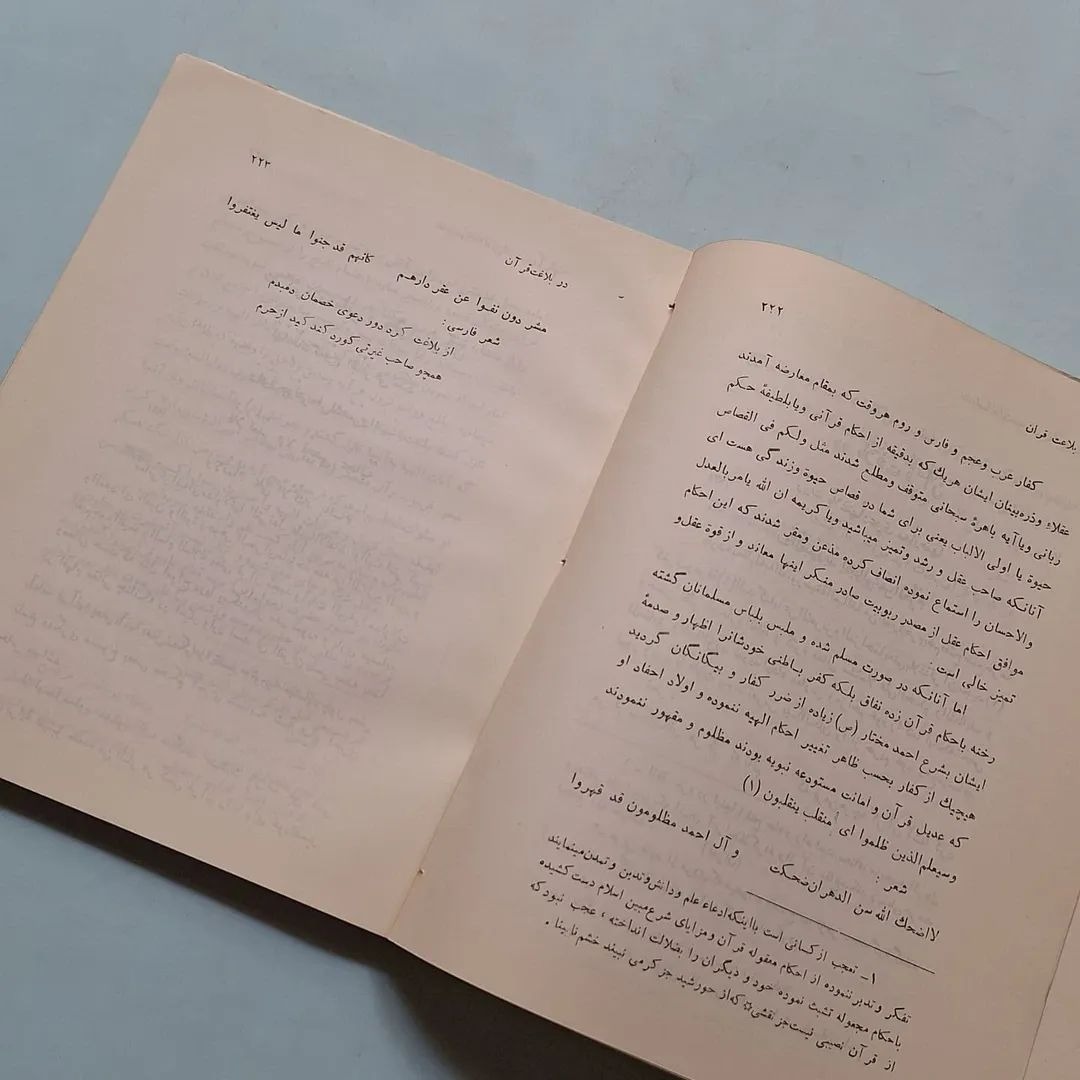 ۲۲۲
بلاغت قرآن
کفار عرب وعجم و فارس و روم هروقت که بمقام معارضه آمدند
عقلاء وذره‌بینان ایشان هریك که بدقیقه از احکام قرآنی ویابلطیفهٔ حکم
ربانی ویاآیه باهرهٔ سبحانی متوقف ومطلع شدند مثل ولکم فی القصاص
حیوة یا اولی الالباب یعنی برای شما در قصاص حیوة وزندگی هست ای
آنانکه صاحب عقل و رشد وتمیز میباشید ویا کریمه ان الله یامربالعدل
والاحسان را استماع نموده انصاف کرده مذعن ومقر شدند که این احکام
موافق احکام عقل از مصدر ربوبیت صادر منکر اینها معاند و از قوة عقل و
تمیز خالی است :
اما آنانکه در صورت مسلم شده و ملبس بلباس مسلمانان گشته
رخنه باحکام قرآن زده نفاق بلکه کفر باطنی خودشانرا اظهار و صدمهٔ
ایشان بشرع احمد مختار (ص) زیاده از ضرر کفار و بیگانگان گردید
هیچیك از کفار بحسب ظاهر تغییر احکام الهیه ننموده و اولاد احفاد او
که عدیل قرآن و امانت مستودعه نبویه بودند مظلوم و مقهور ننمودند
وسیعلم‌الذین ظلموا ای منقلب ینقلبون (۱)
شعر :
لااضحك الله سن الدهران‌ضحکت و آل احمد مظلومون قد قهروا
۱ـ تعجب از کسانی است بااینکه‌ادعاء علم ودانش‌وتدین و تمدن‌مینمایند
تفکر وتدبر ننموده از احکام معقوله قرآن ومزایای شرع‌مبین اسلام دست‌کشیده
باحکام مجعوله تشبث نموده خود و دیگران را بضلالت انداخته ، عجب نبودکه
از قرآن نصیبی نیست‌جز نقشی که‌از خورشید جز گرمی نبیند چشم‌نابینا .
۲۲۳
در بلاغت‌قرآن
مشر دون نفوا عن عقر دارهم کانهم قدجنوا ما لیس یغتفروا
شعر فارسی :
از بلاغت کرد دور دعوی خصمان دمبدم
همچو صاحب غیرتی کورد کند کید ازحرم